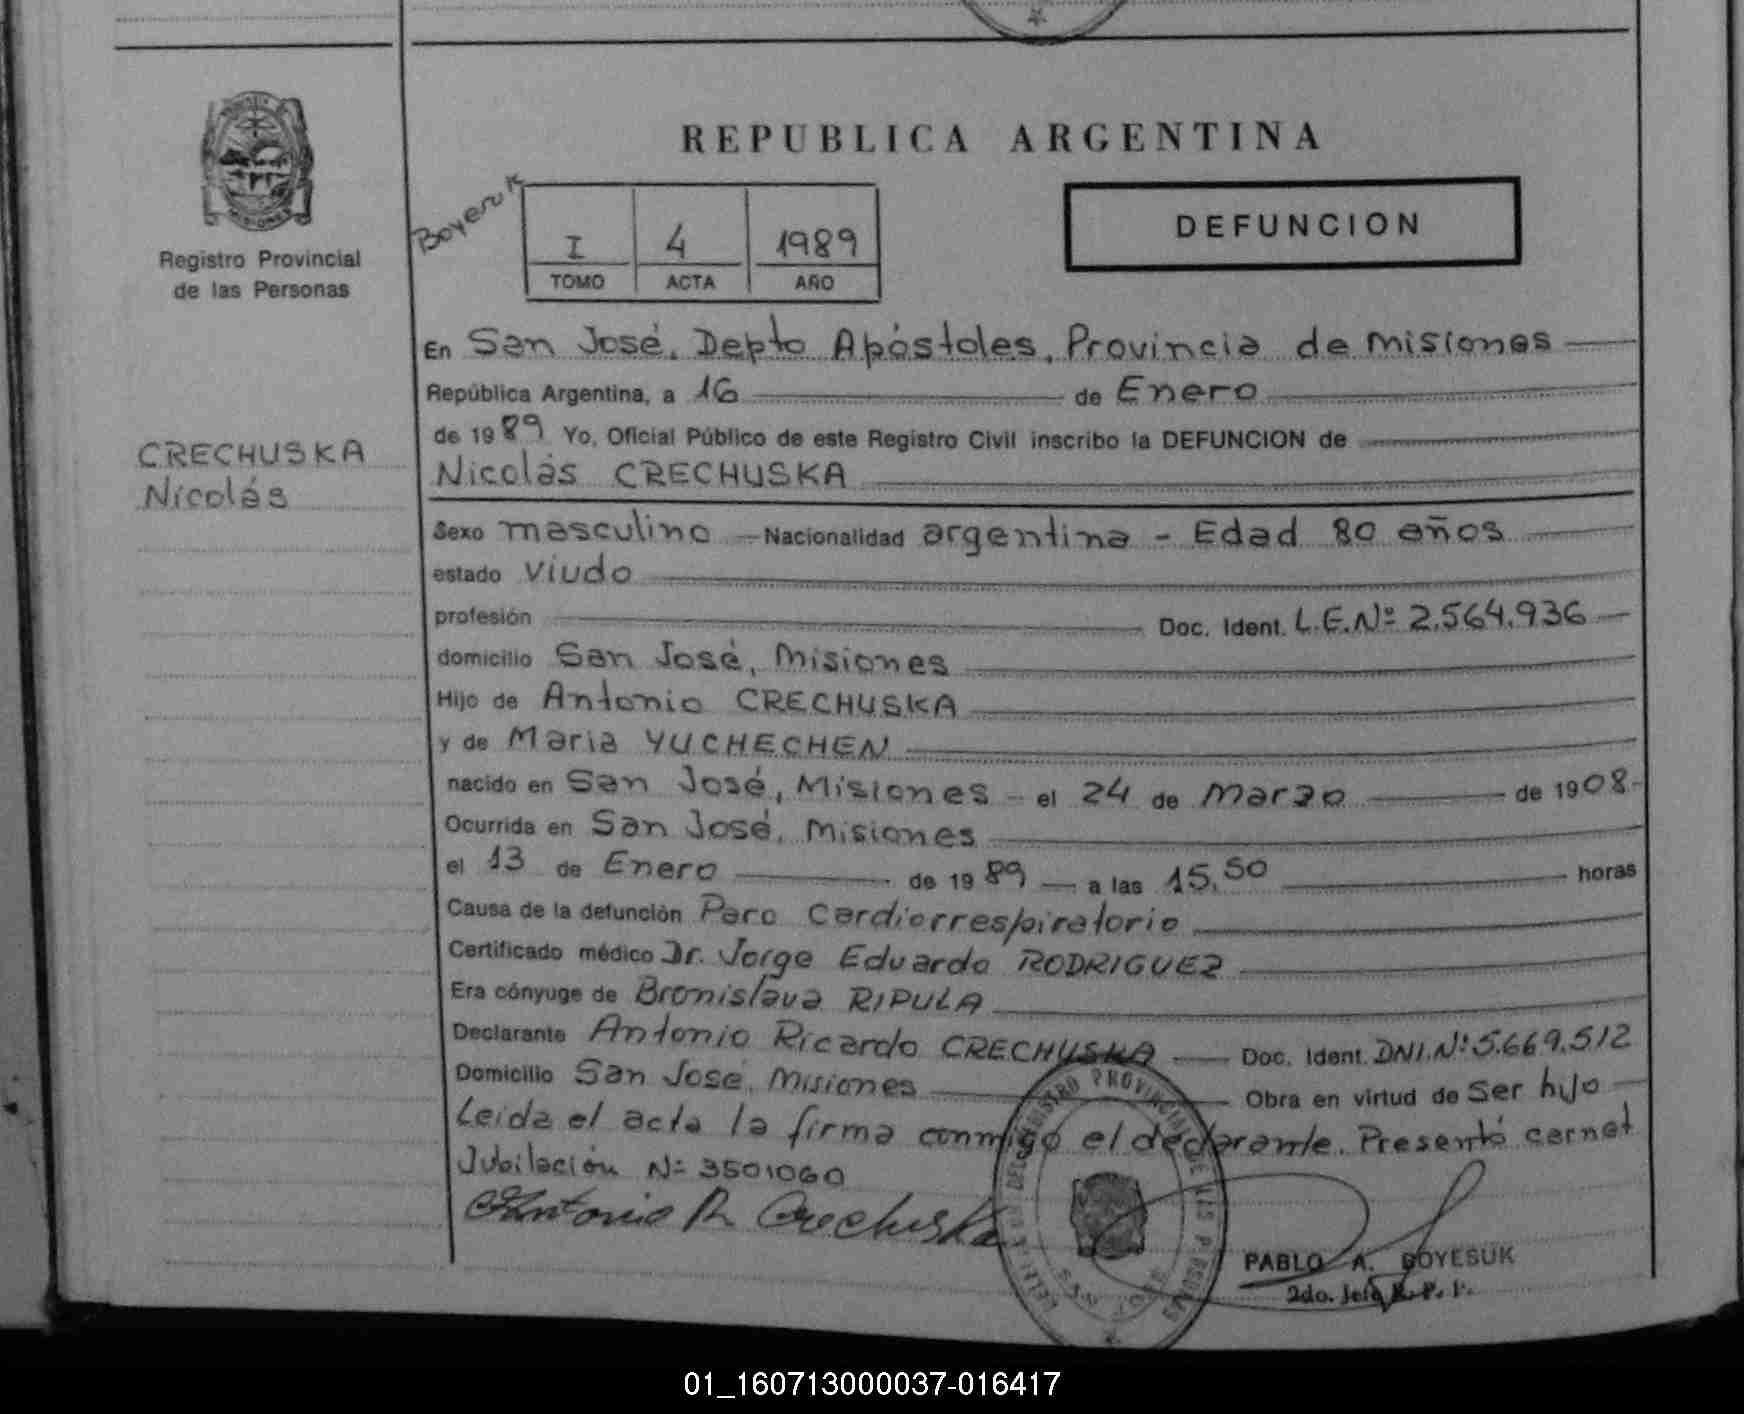 REPUBLICA ARGENTINA
MISIONES
Registro Provincial
de las Personas
Boyesuk
I 4 1989
TOMO ACTA AÑO
DEFUNCION
CRECHUSKA
Nicolás
En San José, Depto Apóstoles, Provincia de misiones
República Argentina, a 16 de Enero
de 1989 Yo, Oficial Público de este Registro Civil inscribo la DEFUNCION de
Nicolás CRECHUSKA
Sexo masculino - Nacionalidad argentina - Edad 80 años
estado Viudo
profesión Doc. Ident. L.E.Nº 2.564.936
domicilio San José, Misiones
Hijo de Antonio CRECHUSKA
y de Maria YUCHECHEN
nacido en San José, Misiones - el 24 de Marzo de 1908-
Ocurrida en San José, Misiones
el 13 de Enero de 1989 a las 15,50 horas
Causa de la defunción Paro Cardiorrespiratorio
Certificado médico Dr. Jorge Eduardo RODRIGUEZ
Era cónyuge de Bronislava RIPULA
Declarante Antonio Ricardo CRECHUSKA Doc. Ident. DNI.Nº 5.669.512
Domicilio San José, Misiones Obra en virtud de Ser hijo
Leida el acta la firma conmigo el declarante. Presentó carnet
Jubilación Nº 3501060
Antonio R. Crechuska
PABLO A. BOYESUK
2do. Jefe R. P. P.
01_160713000037-016417